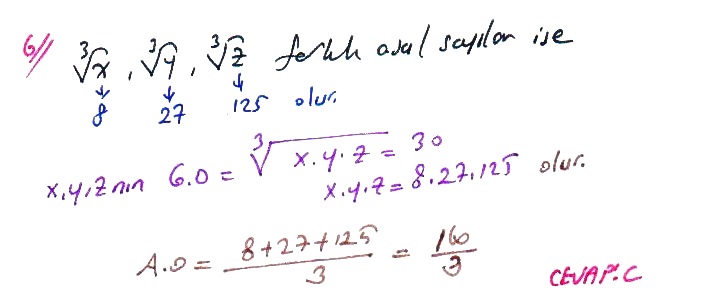 6// ∛x, ∛y, ∛z farklı asal sayılar ise
↓ ↓ ↓
8 27 125 olur.
x,y,z nin G.O = ∛x.y.z = 30
x.y.z = 8.27.125 olur.
A.O = (8+27+125)/3 = 160/3
CEVAP: C